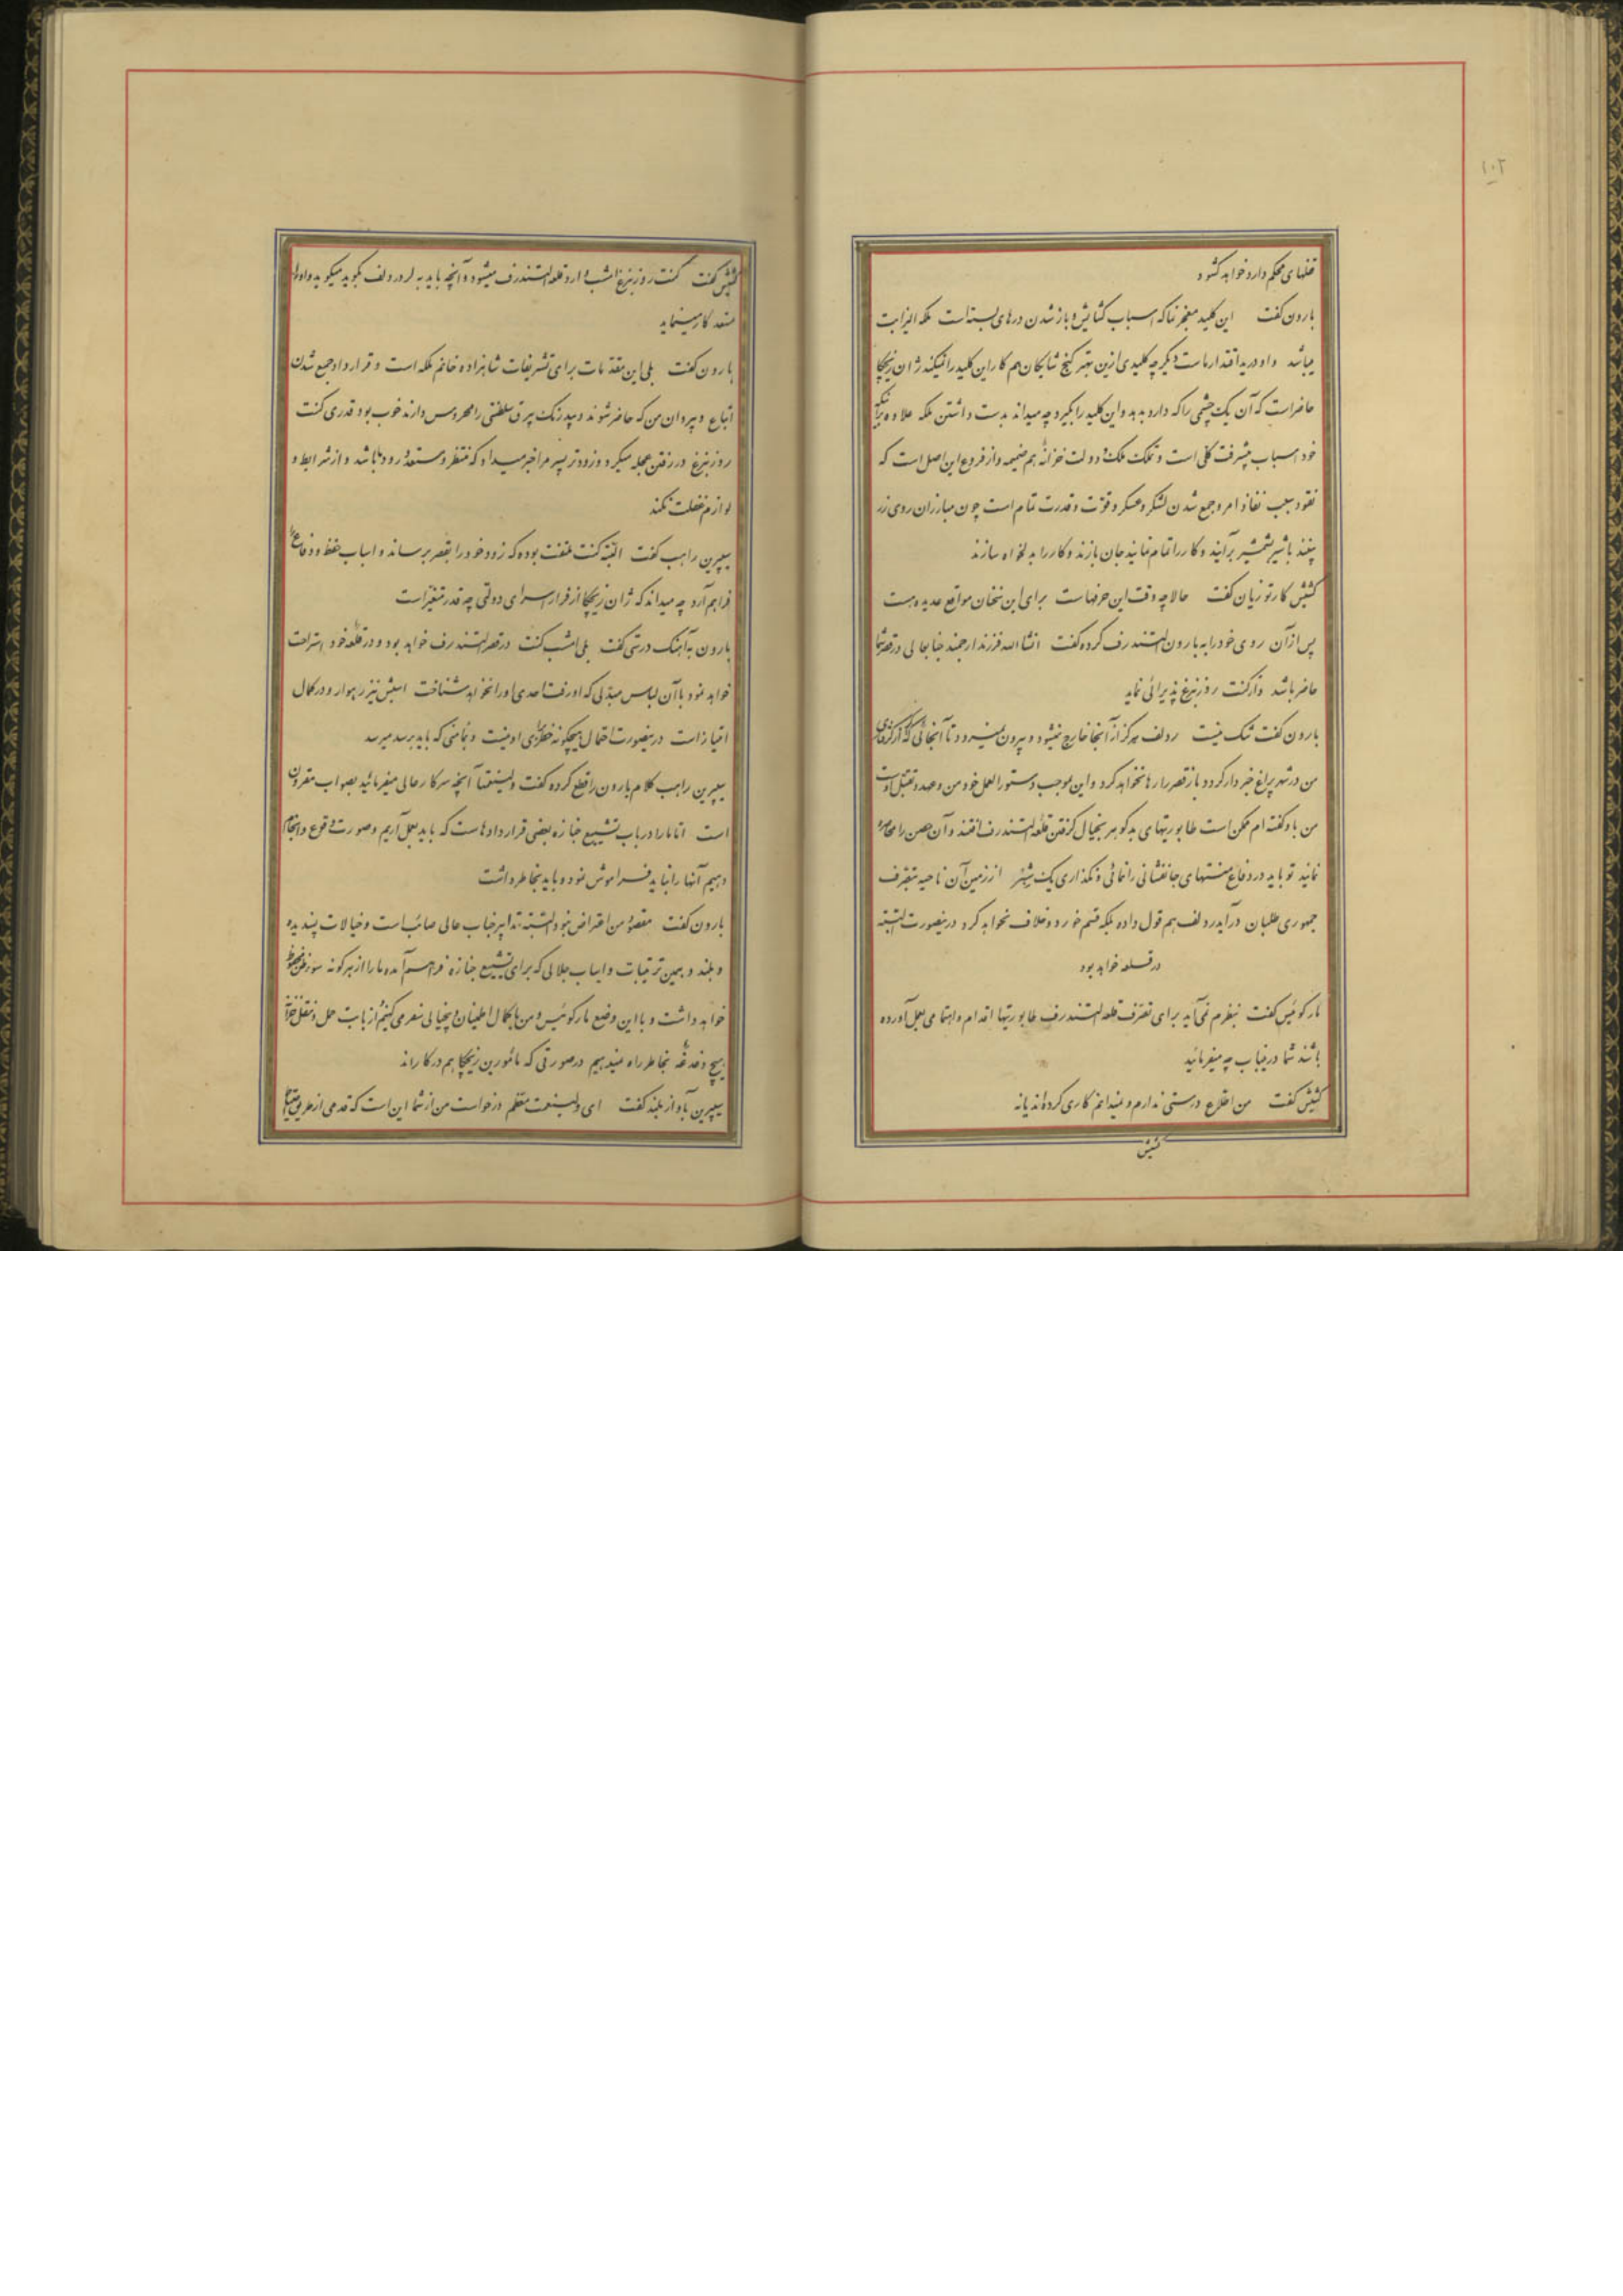 ۱۰۲
قفلهای محکم دارد خواهد کشود
بارون کفت این کلید معجز نما که اسباب کشایش و باز شدن درهای بسته است ملکه الیزابت
میباشد و او در ید اقتدار ماست دیگر چه کلیدی ازین بهتر کنج شایکان هم کار این کلید را نمیکند ژان زیچکا
حاضر است که آن یک چشمی را که دارد بدهد و این کلید را بگیرد چه میداند بدست داشتن ملکه علاوه برآنکه
خود اسباب پیشرفت کلی است و تملک ملک و دولت خزانه هم ضمیمه و از فروع این اصل است که
نقود سبب نفاذ امر و جمع شدن لشکر و عسکر و قوت و قدرت تمام است چون مبارزان روی زر
بینند با شیر بشمشیر برآیند و کار را تمام نمایند جان بازند و کار را بدلخواه سازند
کشیش کارتوزیان کفت حالا چه وقت این حرفهاست برای این سخنان مواقع عدیده هست
پس از آن روی خود را به بارون التندرف کرده کفت انشاالله فرزند ارجمند جنابعالی در قصر شما
حاضر باشد و از کنت روزنبرغ پذیرائی نماید
بارون کفت شک نیست ردلف هرکز از آنجا خارج نمیشود و بیرون نمیرود تا آنجائی که
من در شهر پراغ خبردار کردد باز قصر را رها نخواهد کرد و این بموجب دستورالعمل خود من و عهده و تقبل اوست
من باو کفته ام ممکن است طابوریتهای بدکوهر بخیال کرفتن قلعه التندرف افتند و آن حصن را محاصره
نمایند تو باید در دفاع منتهای جانفشانی را نمائی و نکذاری یک شبر از زمین آن ناحیه بتصرف
جمهوری طلبان درآید ردلف هم قول داده بلکه قسم خورده و خلاف نخواهد کرد درینصورت البته
در قلعه خواهد بود
مارکوئیس کفت بنظرم نمی آید برای تصرف قلعه التندرف طابوریتها اقدام و اهتمامی بعمل آورده
باشند شما درینباب چه میفرمائید
کشیش کفت من اطلاع درستی ندارم و نمیدانم کاری کرده اند یا نه
کشیش
کشیش کفت کنت روزنبرغ امشب وارد قلعه التندرف میشود و آنچه باید به لرد ردلف بگوید میکوید و او را
مستعد کار مینماید
بارون کفت بلی این مقدمات برای تشریفات شاهزاده خانم ملکه است و قرارداد جمع شدن
اتباع و پیروان من که حاضر شوند و بیدرنک بیرق سلطنتی را محروس دارند خوب بود قدری کنت
روزنبرغ در رفتن عجله میکرد و زودتر پسر مرا خبر میداد که منتظر و مستعد ورود ما باشد و از شرایط و
لوازم غفلت نکند
سیپرین راهب کفت البته کنت ملتفت بوده که زود خود را بقصر برساند و اسباب حفظ و دفاع را
فراهم آرد چه میداند که ژان زیچکا از فرار اسرای دولتی چه قدر متغیر است
بارون بآهنک درشتی کفت بلی امشب کنت در قصر التندرف خواهد بود و در قلعه خود استراحت
خواهد نمود با آن لباس مبدلی که او رفت احدی او را نخواهد شناخت اسبش نیز رهوار و در کمال
امتیاز است درینصورت احتمال هیچکونه خطری برای او نیست و بمأمنی که باید برسد میرسد
سیپرین راهب کلام بارون را قطع کرده کفت ولینعمتا آنچه سرکار عالی میفرمائید بصواب مقرون
است اما ما را در باب تشییع جنازه بعضی قراردادهاست که باید بعمل آریم و صورت وقوع و انجام
دهیم آنها را نباید فراموش نمود و باید بخاطر داشت
بارون کفت مقصود من اعتراض نبود البته تدابیر جناب عالی صائب است و خیالات پسندیده
و بلند و بهمین ترتیبات و اسباب جلالی که برای تشییع جنازه فراهم آمده ما را از هرکونه سوءظن محفوظ
خواهد داشت و با این وضع مارکوئیس و من با کمال اطمینان و بیخیالی سفر می کنیم از بابت حمل و نقل خزانه
هیچ دغدغه بخاطر راه نمیدهیم در صورتی که مأمورین زیچکا هم در کاراند
سیپرین بآواز بلند کفت ای ولینعمت معظم درخواست من از شما این است که قدمی از طریق